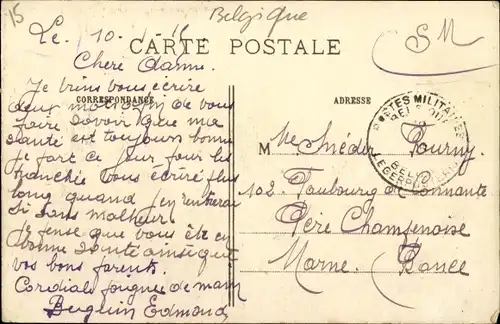 15
Belgique
Le 10
CARTE POSTALE
SM
Cheré Dame.
Je viens vous écrire
CORRESPONDANCE
deux mots de vous
faire savoir que ma
santé est toujours bonne
Je part ce jour pour les
tranchée Vous écriré plus
long quand j'en rentrerai
Si sans malheur.
Je pense que vous ète en
bonne santé ainsi que
vos bons parents.
Cordiale poignee de main
Beguin Edmond
ADRESSE
M Médor Fourny
102 Faubourg de
Fère Champenoise
Marne. France
POSTES MILITAIRES
BELGIQUE
BELGIE
LEGERPOSTERIJ